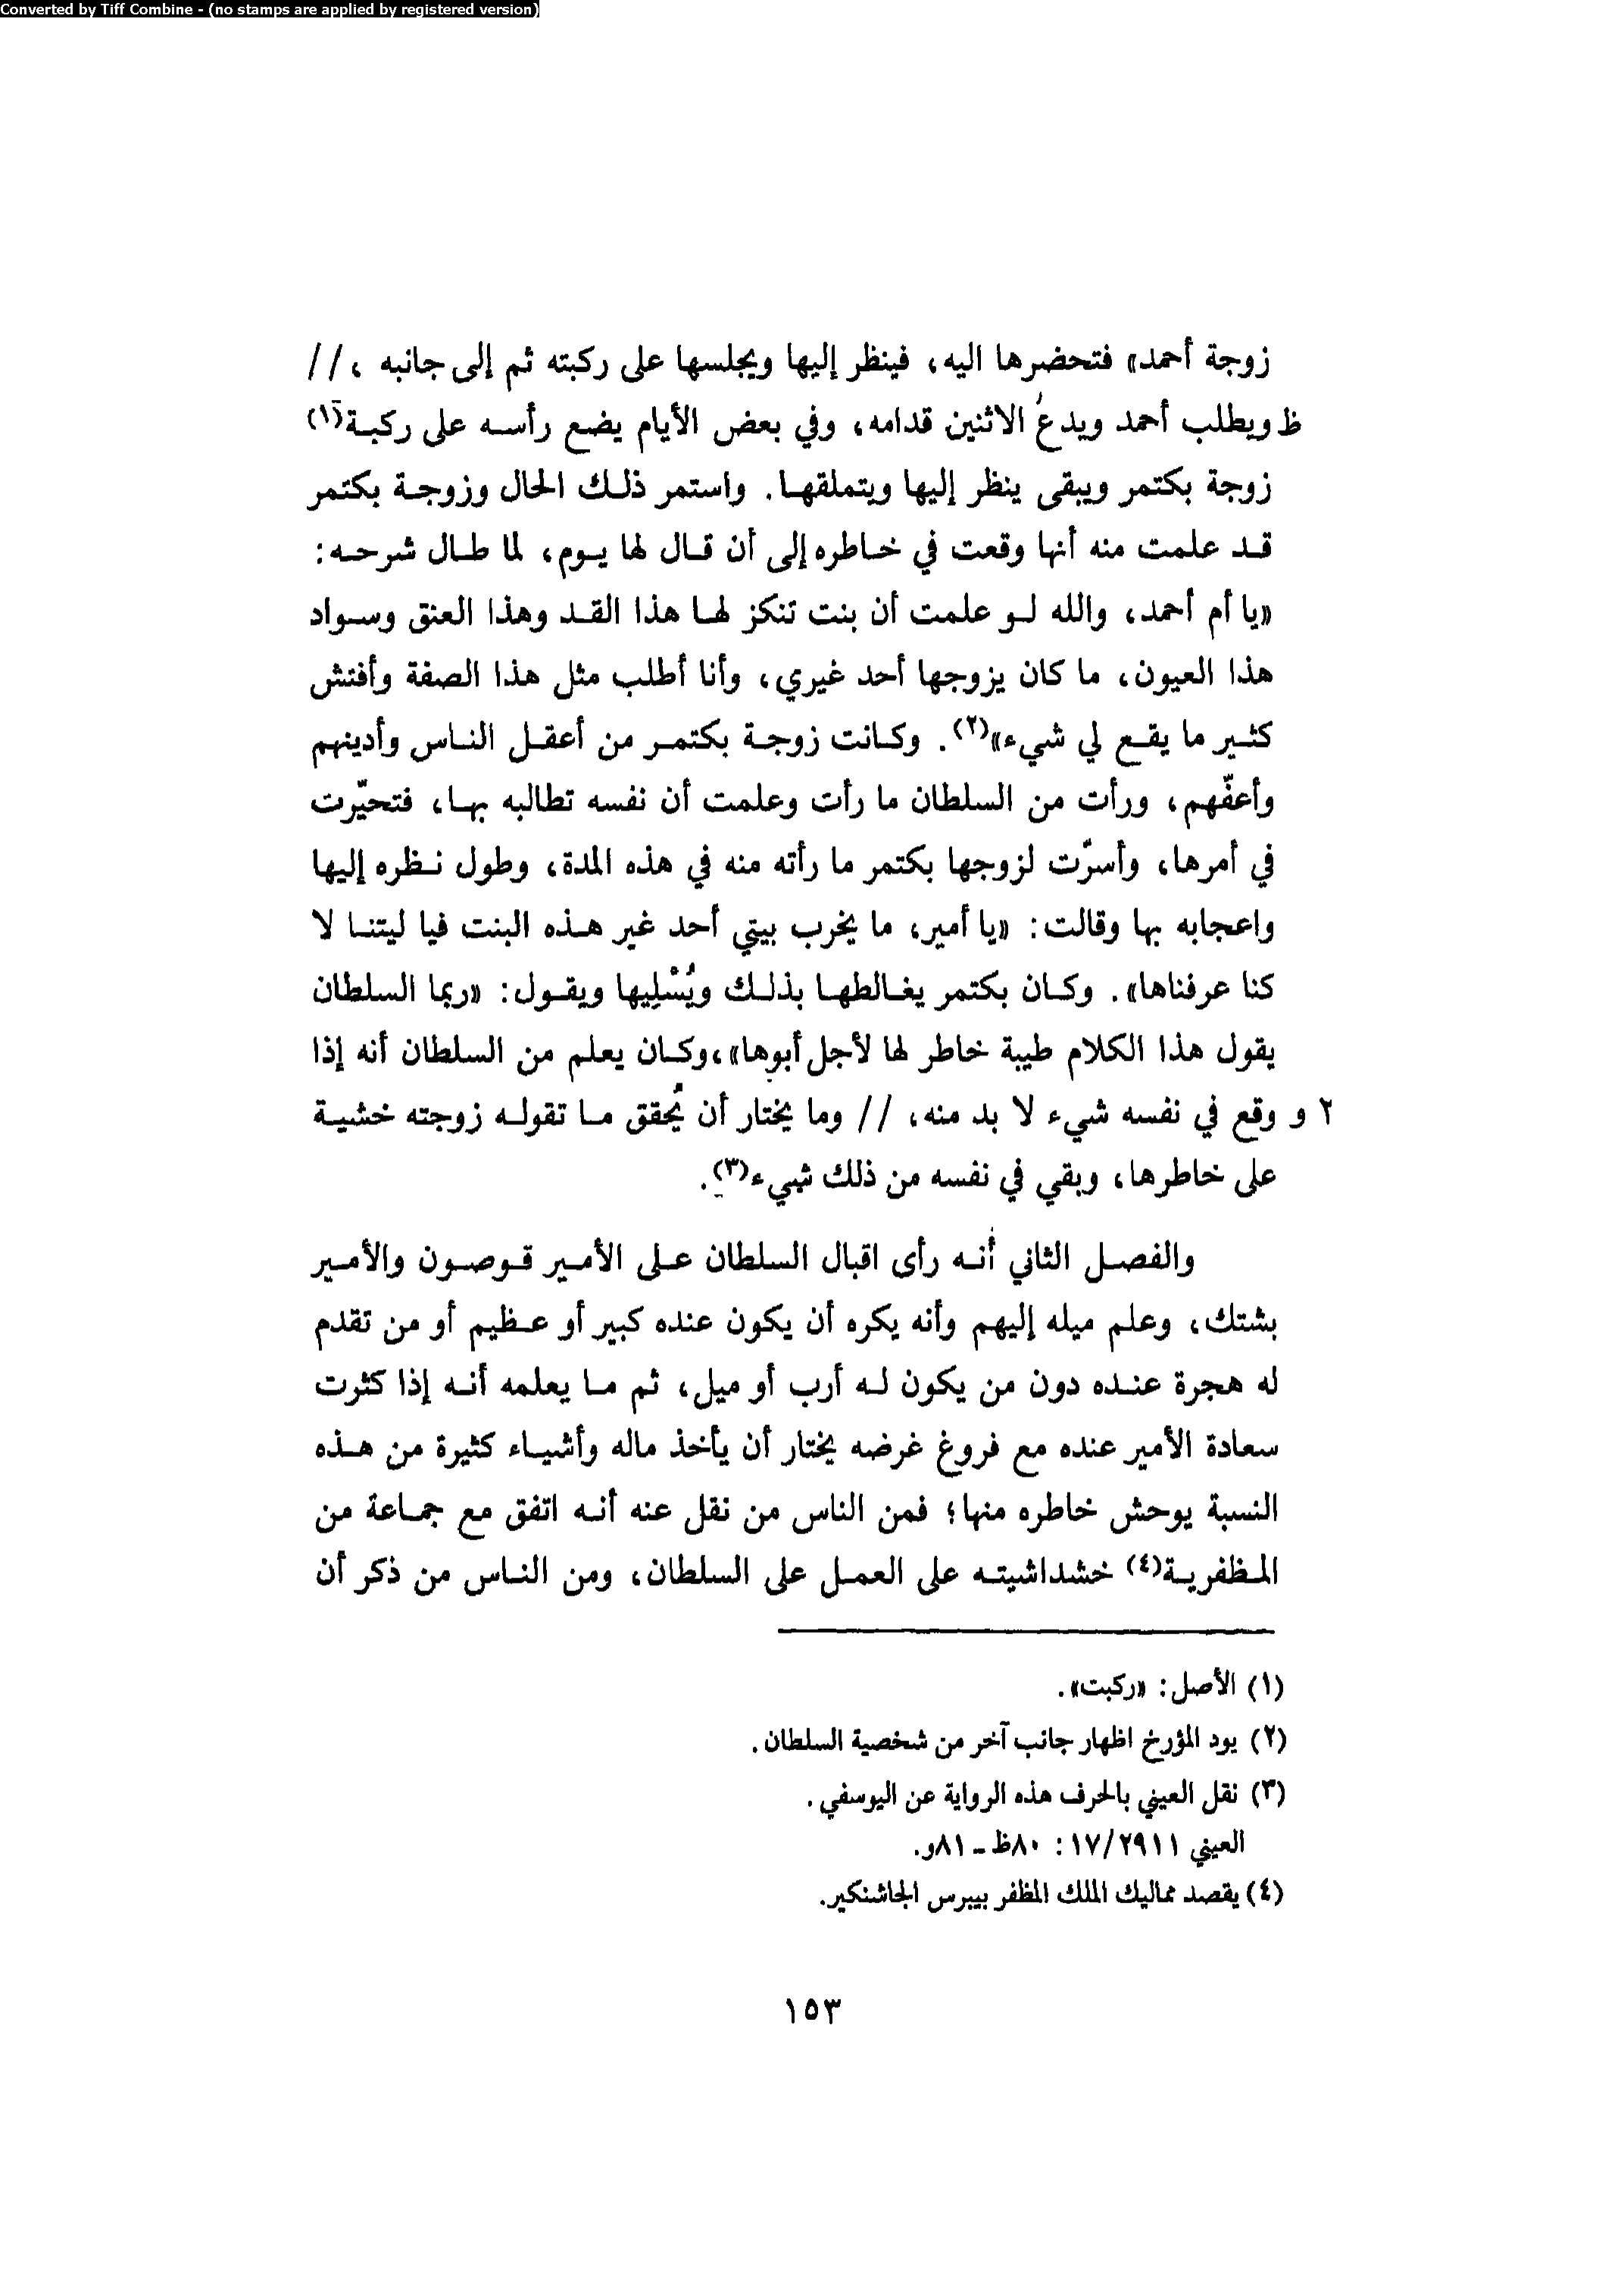 Converted by Tiff Combine - (no stamps are applied by registered version)
زوجة أحمد» فتحضرها اليه، فينظر إليها ويجلسها على ركبته ثم إلى جانبه ، //
ظ ويطلب أحمد ويدعُ الاثنين قدامه، وفي بعض الأيام يضع رأسه على ركبة(١)
زوجة بكتمر ويبقى ينظر إليها ويتملقها. واستمر ذلك الحال وزوجة بكتمر
قد علمت منه أنها وقعت في خاطره إلى أن قال لها يوم، لما طال شرحه:
«يا أم أحمد، والله لو علمت أن بنت تنكز لها هذا القد وهذا العنق وسواد
هذا العيون، ما كان يزوجها أحد غيري، وأنا أطلب مثل هذا الصفة وأفتش
كثير ما يقع لي شيء»(٢). وكانت زوجة بكتمر من أعقل الناس وأدينهم
وأعفّهم، ورأت من السلطان ما رأت وعلمت أن نفسه تطالبه بها، فتحيّرت
في أمرها، وأسرّت لزوجها بكتمر ما رأته منه في هذه المدة، وطول نظره إليها
واعجابه بها وقالت: «يا أمير، ما يخرب بيتي أحد غير هذه البنت فيا ليتنا لا
كنا عرفناها». وكان بكتمر يغالطها بذلك ويُسْلِيها ويقول: «ربما السلطان
يقول هذا الكلام طيبة خاطر لها لأجل أبوها»، وكان يعلم من السلطان أنه إذا
٢ و وقع في نفسه شيء لا بد منه، // وما يختار أن يُحقق ما تقوله زوجته خشية
على خاطرها، وبقي في نفسه من ذلك شيء(٣).
والفصل الثاني أنه رأى اقبال السلطان على الأمير قوصون والأمير
بشتك، وعلم ميله إليهم وأنه يكره أن يكون عنده كبير أو عظيم أو من تقدم
له هجرة عنده دون من يكون له أرب أو ميل، ثم ما يعلمه أنه إذا كثرت
سعادة الأمير عنده مع فروغ غرضه يختار أن يأخذ ماله وأشياء كثيرة من هذه
النسبة يوحش خاطره منها؛ فمن الناس من نقل عنه أنه اتفق مع جماعة من
المظفرية(٤) خشداشيته على العمل على السلطان، ومن الناس من ذكر أن
(١) الأصل: «ركبت».
(٢) يود المؤرخ اظهار جانب آخر من شخصية السلطان.
(٣) نقل العيني بالحرف هذه الرواية عن اليوسفي.
العيني ١٧/٢٩١١: ٨٠ظ - ٨١و.
(٤) يقصد مماليك الملك المظفر بيبرس الجاشنكير.
١٥٣